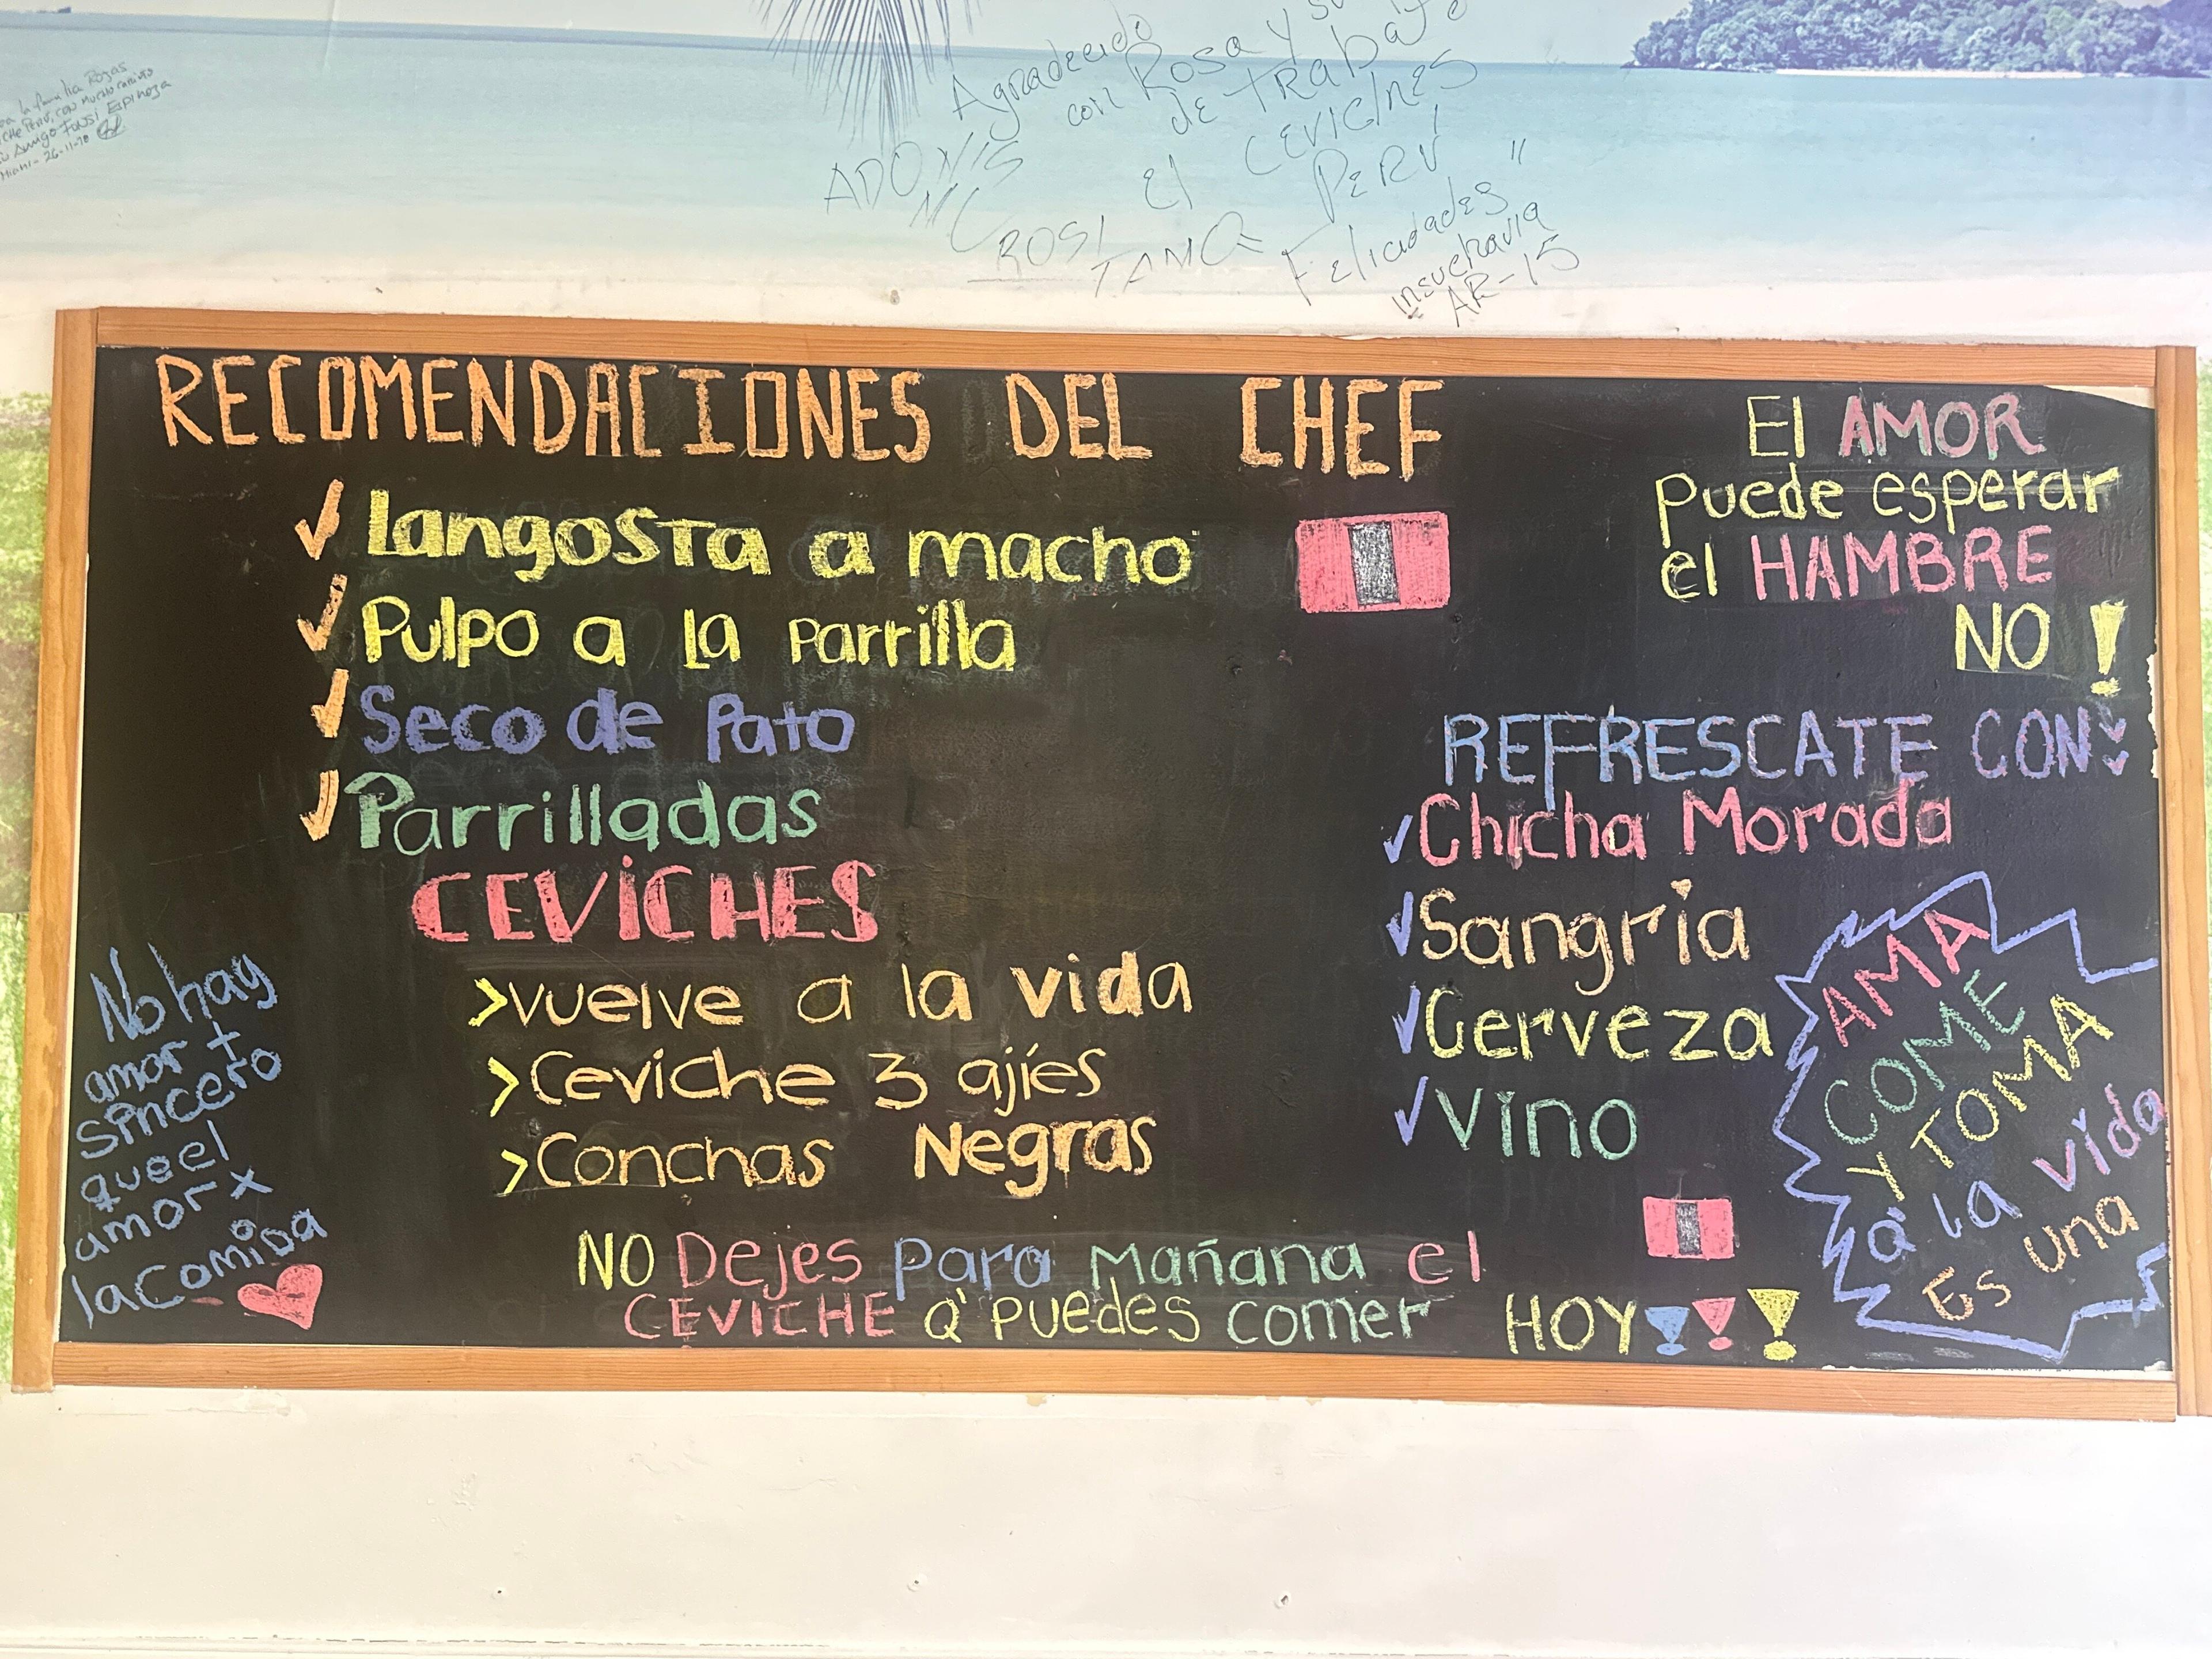 la familia Rojas
Perú, con mucho cariño
su Amigo Fonsi Espinoza
Miami - 26-11-
Agradecido
con Rosa y su
de TRabajo
ADONIS
MC
El CEVICHES
PERÚ "
ROSI
TAMO
Felicidades
AR-15
RECOMENDACIONES DEL CHEF
✓ Langosta a macho
✓ Pulpo a la Parrilla
✓ Seco de Pato
✓ Parrilladas
CEVICHES
>vuelve a la vida
>Ceviche 3 ajíes
>Conchas Negras
No hay
amor +
sincero
que el
amor x
la comida
NO Dejes Para Mañana el
CEVICHE Q' PUEDES comer HOY
El AMOR
Puede esperar
el HAMBRE
NO !
REFRESCATE CON:
✓Chicha Morada
✓Sangria
✓Cerveza
✓Vino
AMA
COME
Y TOMA
Q' la vida
Es una